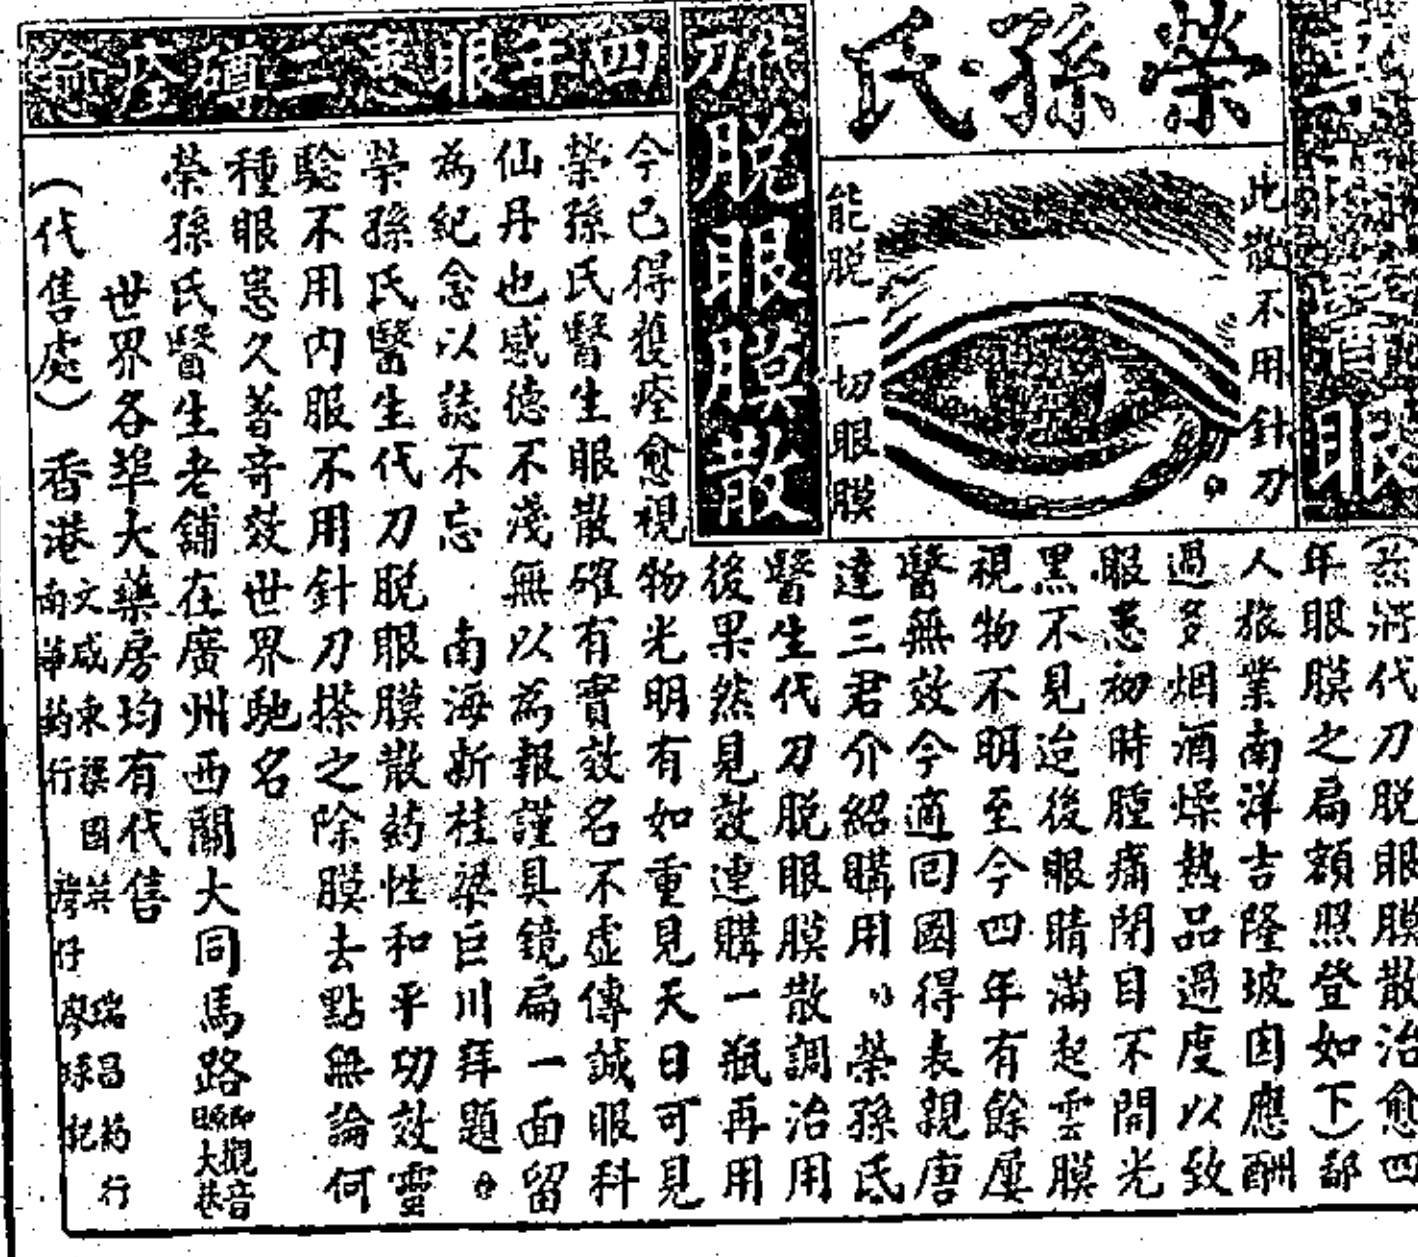 專
醫眼
榮孫氏
此散不用針刀
能脱一切眼膜
代刀
脫眼膜散
四年眼患三磚痊愈
(茲將代刀脫眼膜散治愈四
年眼膜之扁額照登如下)鄙
人旅業南洋吉隆玻因應酬
過多烟酒燥熱品過度以致
眼患初時腫痛閉目不開光
黑不見迨後眼睛滿起雲膜
視物不明至今四年有餘屢
醫無效今適回國得表親唐
達三君介紹購用榮孫氏
醫生代刀脫眼膜散調治用
後果然見效連購一瓶再用
今已得獲痊愈視物光明有如重見天日可見
榮孫氏醫生眼散確有實效名不虛傳誠眼科
仙丹也感德不淺無以為報謹具鏡扁一面留
為紀念以誌不忘 南海新桂梁巨川拜題
榮孫氏醫生代刀脫眼膜散葯性和平功效靈
驗不用內服不用針刀搽之除膜去點無論何
種眼患久著奇效世界馳名
榮孫氏醫生老舖在廣州西關大同馬路即觀音大巷
世界各埠大藥房均有代售
(代售處)香港文咸東 瑞昌葯行
南華葯行 灣仔